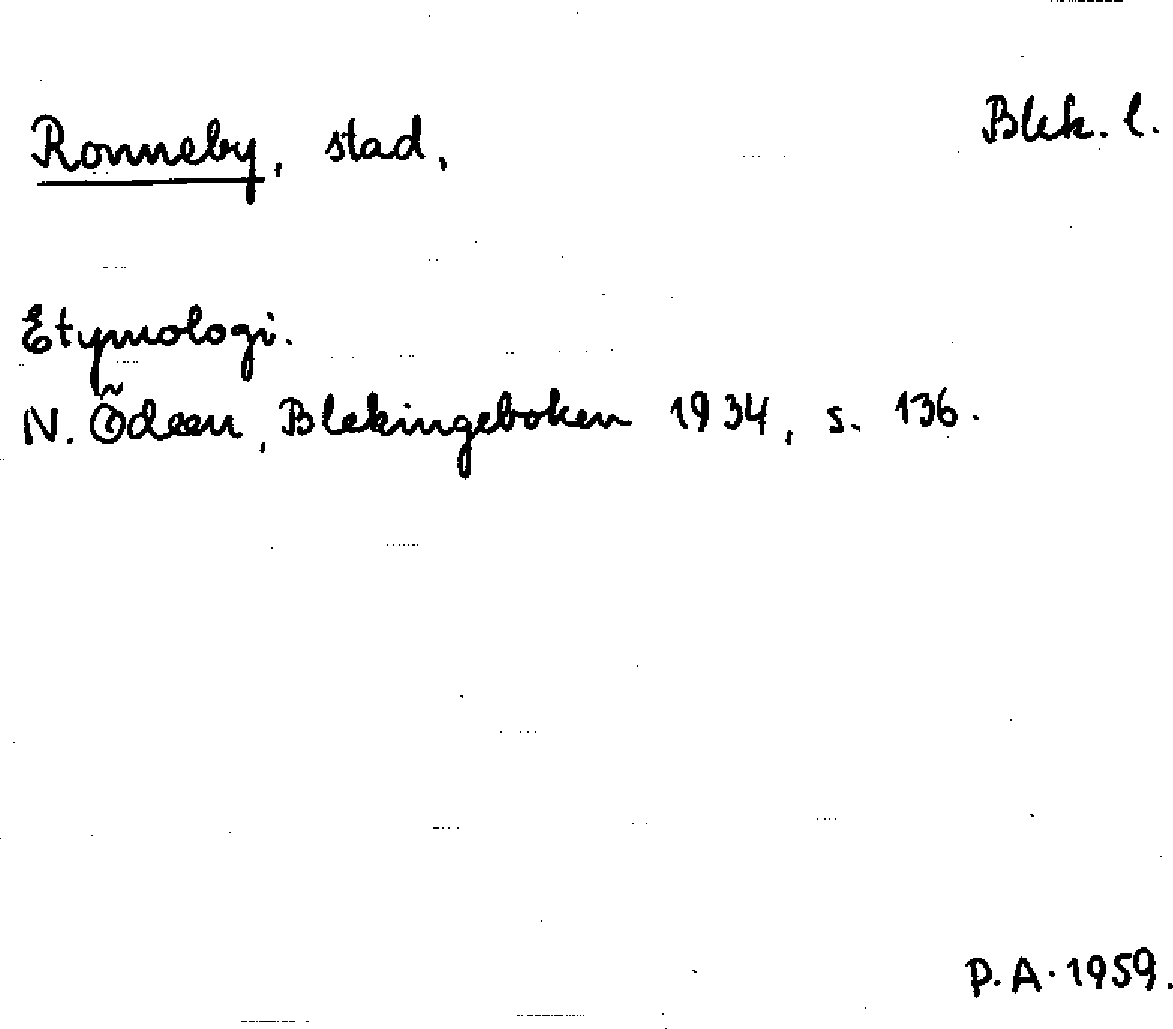 Ronneby, stad, Blek. l.
Etymologi.
N. Ödeen, Blekingeboken 1934, s. 136.
P.A. 1959.